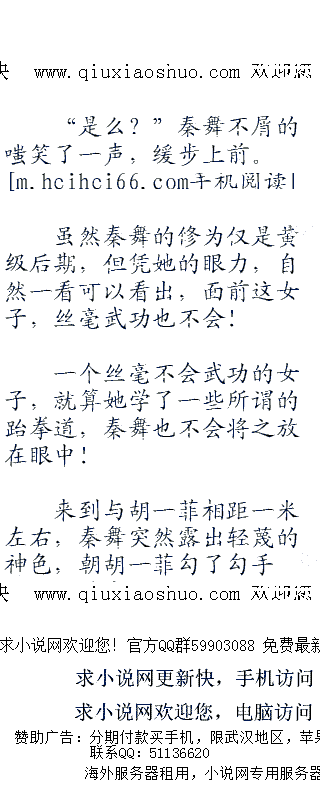 快 www.qiuxiaoshuo.com 欢迎您
“是么？”秦舞不屑的
嗤笑了一声，缓步上前。
[m.hcihci66.com手机阅读]
虽然秦舞的修为仅是黄
级后期，但凭她的眼力，自
然一看可以看出，面前这女
子，丝毫武功也不会！
一个丝毫不会武功的女
子，就算她学了一些所谓的
跆拳道，秦舞也不会将之放
在眼中！
来到与胡一菲相距一米
左右，秦舞突然露出轻蔑的
神色，朝胡一菲勾了勾手
快 www.qiuxiaoshuo.com 欢迎您
求小说网欢迎您！官方QQ群59903088 免费最新
求小说网更新快，手机访问
求小说网欢迎您，电脑访问
赞助广告：分期付款买手机，限武汉地区，苹果
联系QQ：51136620
海外服务器租用，小说网专用服务器